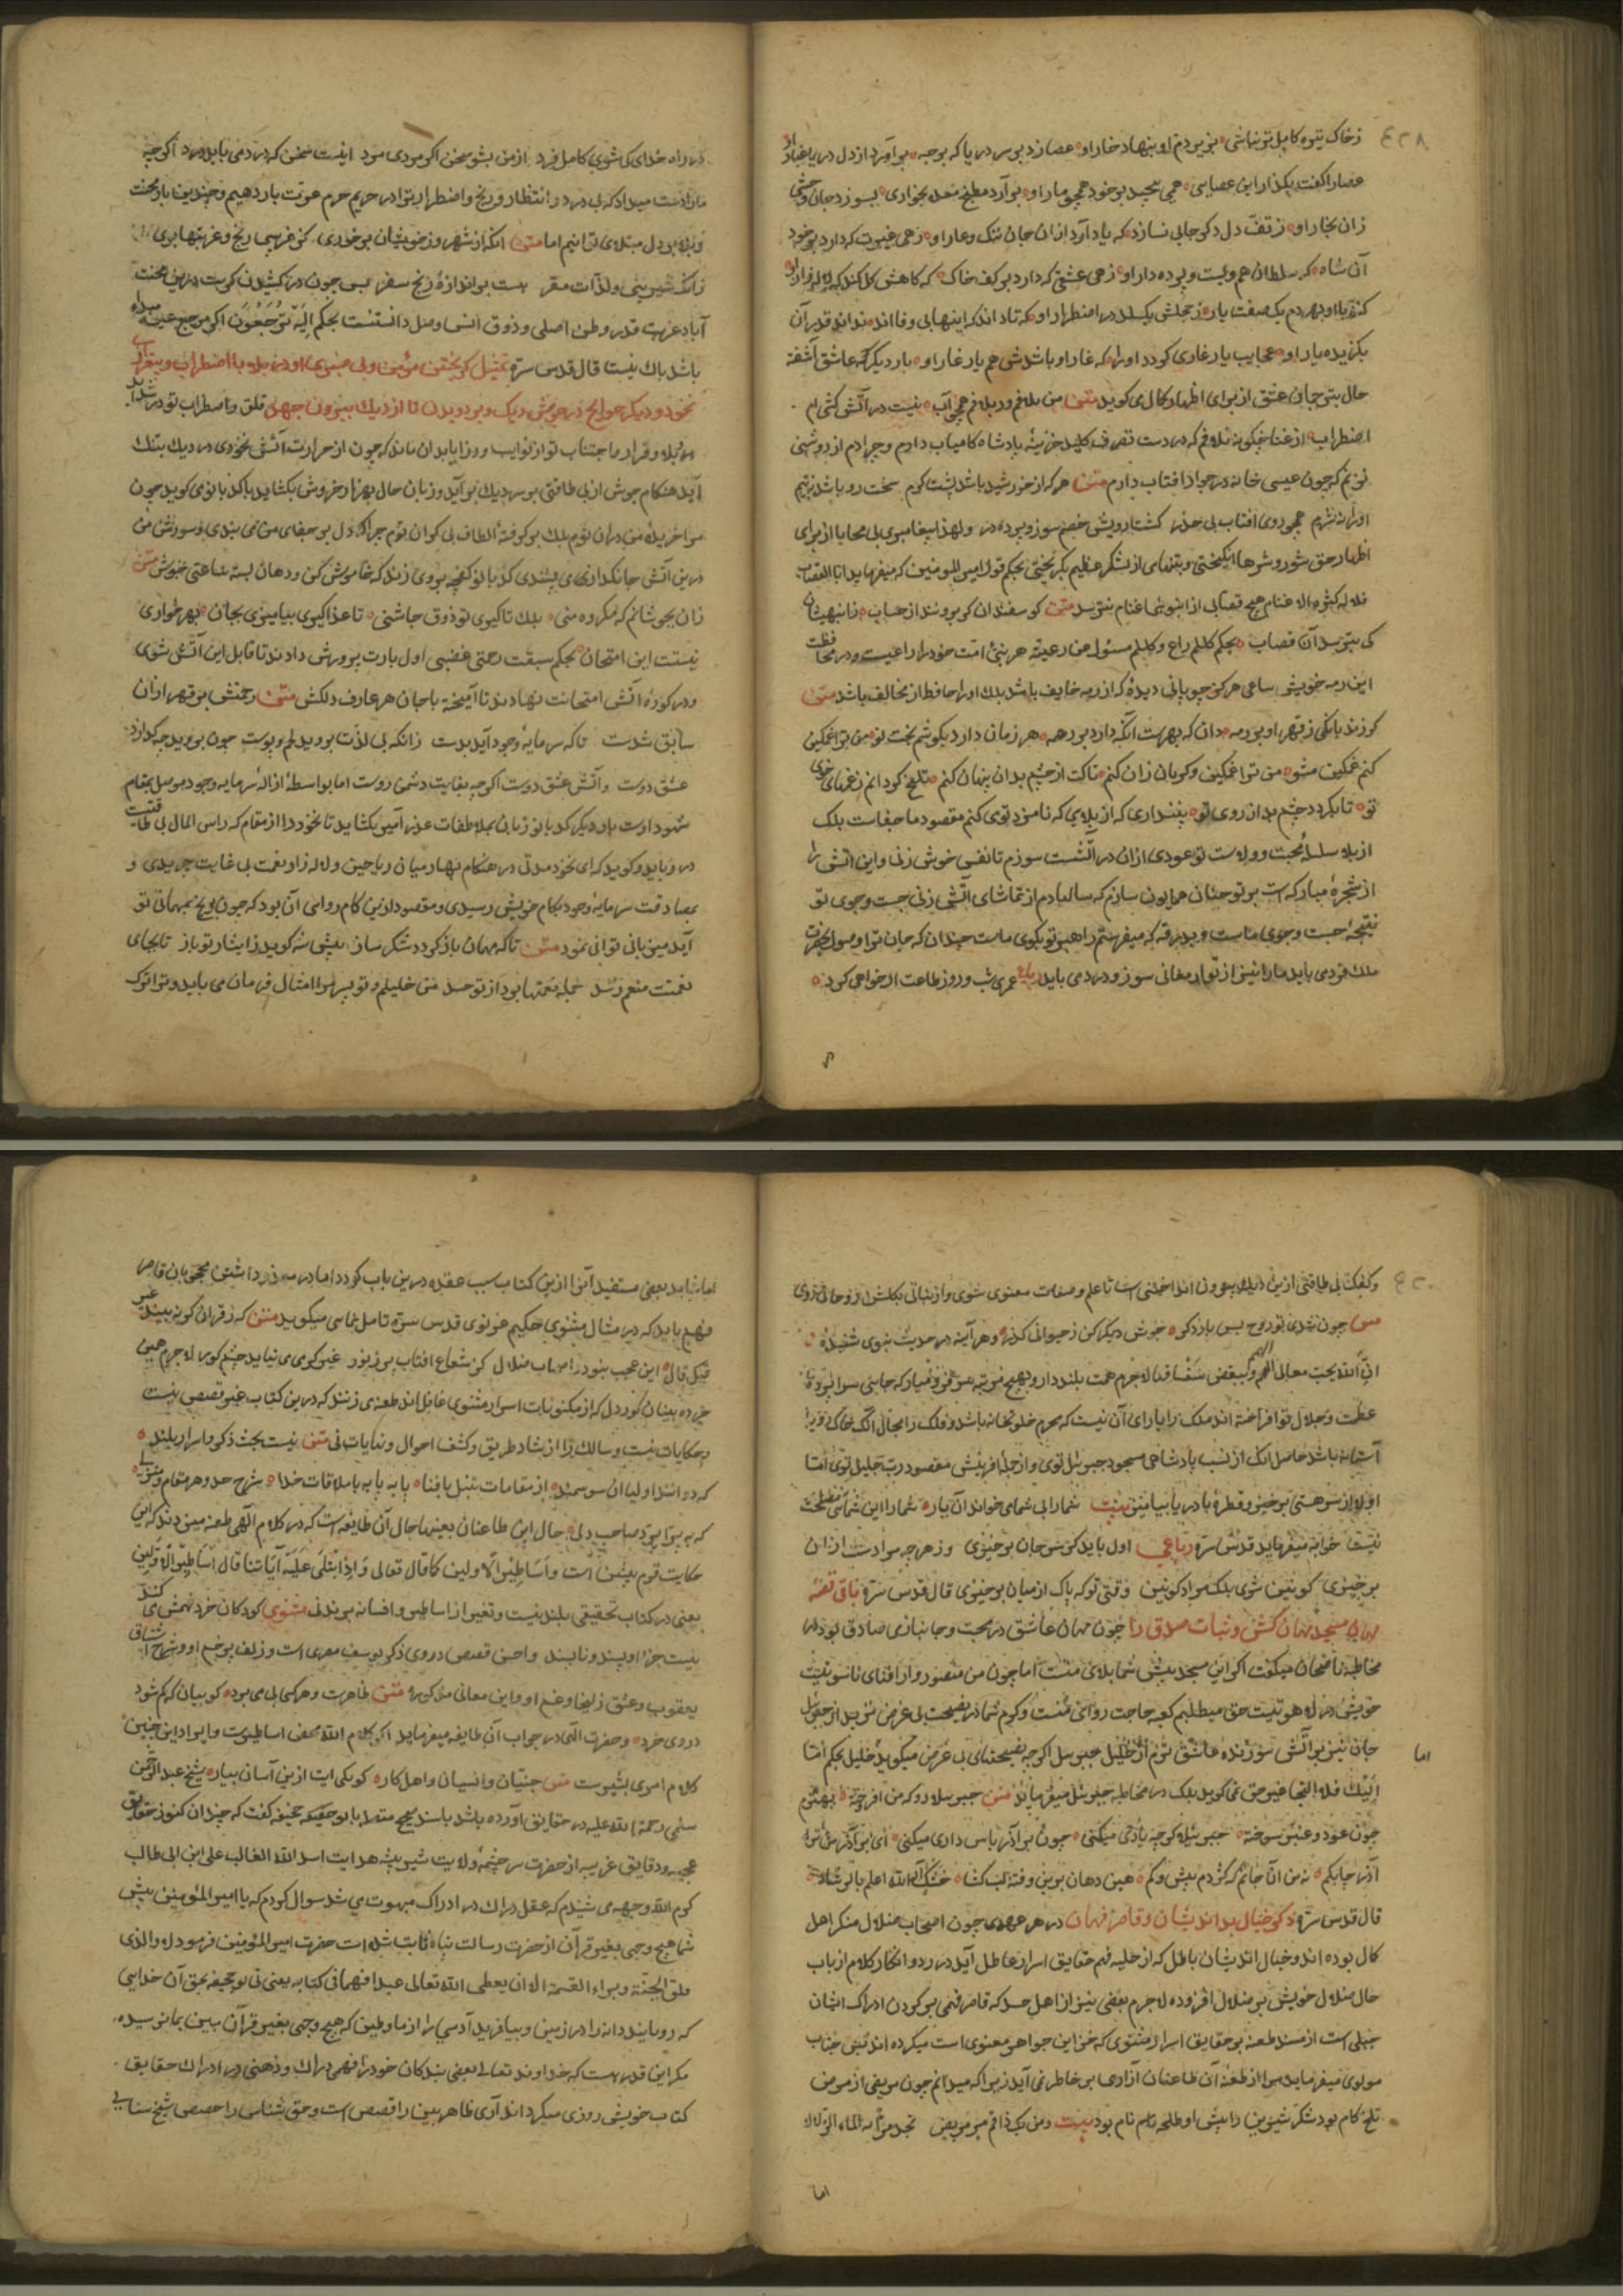 ۴۲۸
ز خاک تیره کاهل تو نباشی بزیر دم او بنهاد خار او عصا زد بر سر دریا که برجه برآورد از دل دریا غبار او
عصا را گفت بگذار این عصایی همی پیچد بر خود همچو مار او برآرد مطبخ معده بخاری بسوزد جان
زان بخار او ز تف دل دگر جایی نسازد که یاد آرد ازان جان ننگ و عار او زهی غیرت که دارد بر خود
آن شاه که سلطان هم ویست و پرده دار او زهی عشقی که دارد بر کف خاک که کاهش گل کند که لاله زار او
کند با او بهر دم یک صفت یار ز جمله بگسلد در اضطرار او که تا داند که اینها بی وفا اند نداند قدر آن
بگزیده یار او عجایب یار غاری گردد او را که غار او باشدش هم یار غار او بار دیگر که عاشق آشفته
حال بتی جان عشق از برای اظهار کمال می گوید متن من نلافم ور بلافم همچو آب نیست در آتش کشی ام
اضطراب از غنا چگونه نلافم که در دست تصرف کلید خزینه پادشاه کامیاب دارم و چرا دم از روشنی
نزنم که چون عیسی خانه در جوار آفتاب دارم متن هر که از خورشید باشد پشت گرم سخت رو باشد نه بیم
او را نه شرم همچو روی آفتاب بی حذر گشت رویش خصم سوز و پرده در و لهذا پیغامبری بی محابا از برای
اظهار حق شور و شرها انگیختی و بتنهایی از لشکر عظیم نگریختی بحکم قول امیر المومنین که میفرماید انا القصاب
فلا له کثرة الاغنام هیچ قصابی از انبوهی اغنام نترسد متن گوسفندان گر برونند از حساب ز انبهیشان
کی بترسد آن قصاب بحکم کلکم راع و کلکم مسئول عن رعیته هر نبی امت خود را راعیست و در محافظت
این رمه خویش ساعی هرگز چوپانی دیده که از رمه خایف باشد بلک او را حافظ از مخالف باشد متن
گر زند بانگی ز قهر او بر رمه دان که بهرست آنکه دارد بر همه هر زمان دارد بگوشم بخت نو من ترا غمگین
کنم غمگین مشو من ترا غمگین و گریان زان کنم تا کت از چشم بدان پنهان کنم تلخ گردانم ز غمهای خوی
تو تا بگردد چشم بد از روی تو پنداری که از بلایی که نامزد تو می کنم مقصود ما جفاست بلک
از بلا سلسله محبت و ولاست تو عودی ازان در آتشت سوزم تا نفسی خوش زنی و این آتش را
از شجره مبارکه است بر تو چنان همایون سازم که سالها دم از تماشای آتش زنی جست و جوی تو
نتیجه جست و جوی ماست و بدرقه که میفرستم راهبر تو بکوی ماست چندان که جان ترا وصول بحضرت
ملک فردی باید ما را نیز از تو ارمغانی سوز و دردی باید رباعی عمری شب و روز طاعت ار خواهی کرد

در راه خدای کی شوی کامل فرد از من بشنو سخن اگر مردی مرد اینست سخن که درد می باید درد اگر چه
ما را دست میداد که بی درد و انتظار و رنج و اضطرار ترا در حریم حرم عزت بار دهیم و چندین بار محنت
و بلا بر دل مبتلای تو ننهیم اما متن آنکه از شهر و ز خویشان بر خوری کز غریبی رنج و غربتها بری
زانک شیرینی و لذات مقر هست بر اندازه رنج سفر پس چون در کشیدن کربت درین محنت
آباد غربت قدر وطن اصلی و ذوق انس و وصل دانستنست بحکم الیه ترجعون اگر مرجع عین مبدا
باشد باک نیست قال قدس سره تمثیل گریختن مؤمن و بی صبری او در بلا با اضطراب و بیقراری
نخود و دیگر حوایج در جوش دیگ و بر دویدن تا از دیک بیرون جهد قلق و اضطراب تو در شداید
و بلا و قرار و اجتناب تو از نوایب و رزایا بدان ماند که چون از حرارت آتش نخودی در دیک بتنک
آید هنگام جوش از بی طاقتی بر سر دیک بر آید و زبان حال بهزار خروش بکشاید با کدبانو می گوید چون
مرا خریده من دران توم بلک بر گرفته الطاف بی کران توم چرا کدل بر جفای من می بندی و سوزش من
درین آتش جانگداز می پسندی کدبانو کفچه بر وی زند که خاموش کن و دهان بسته ساعتی خوش متن
زان بجوشانم که مکروه منی بلک تا گیری تو ذوق چاشنی تا غذا گیری بیامیزی بجان بهر خواری
نیستت این امتحان بحکم سبقت رحمتی غضبی اول بآبت پرورش دادند تا قابل این آتش شوی
و در کوره آتش امتحانت نهادند تا آمیخته با جان هر عارف دلکش متن رحمتش بر قهر ازان
سابق شدست تا که سرمایه وجود آید بدست زانکه بی لذت نروید لحم و پوست چون نروید چه گدازد
عشق دوست و آتش عشق دوست اگر چه بغایت دشمن روست اما بواسطه ازاله سرمایه وجود موصل بمقام
شهود اوست بار دیگر کدبانو زبان بملاطفات عذر آمیز بکشاید تا نخود را از مقام که راس المال بی طاقتیست
در رباید و گوید که ای نخود مدتی در هنگام بهار میان ریاحین و لاله زار و نعمت بی غایت چریدی و
بمصادقت سرمایه وجود بکام خویش رسیدی و مقصود ازین کامروایی آن بود که چون رنج بمهمانی تو
آید میزبانی توانی نمود متن تا که مهمان باز گردد شکر ساز پیش شه گوید ز ایثار تو باز تا بجای
نعمتت منعم رسد جمله نعمتها برد از تو حسد من خلیلم و تو پسر ترا امتثال فرمان می باید و ترا ترک

و گفت بی طاقتی ازین دیگ بیرون انداختنی است تا علم و صفات معنوی شوی و از نباتی بگلشن روحانی روی
متن چون شدی تو روح پس بار دگر جوش دیگر کن ز حیوانی گذر و هر آینه در حدیث نبوی شنیده
ان الله یحب معالی الهمم و یبغض سفسافها لاجرم همت بلند دار و بهیچ مرتبه سر فرو میار که جایی سراپرده
عظمت و جلال تو افراخته اند ملک را یارای آن نیست که محرم خلوتخانه باشد و فلک را مجال آنک خاک روب
آستانه باشد حاصل آنک از نسب پادشاهی مسجود جبرئیل توی و از جمله آفرینش مقصود رب جلیل توی اما
اولا از سر هستی برخیز و قطره با دریا بیامیز بیت شما را بی شما می خواند آن یار شما را این شمایی مصلحت
نیست خواجه میفرماید قدس سره رباعی اول باید کز سر جان برخیزی وز هر چه مرادست ازان
برخیزی کونین شوی بلک مراد کونین وقتی تو که پاک از میان برخیزی قال قدس سره باقی قصه
مهمان مسجد مهمان کش و ثبات صدق را چون مهمان عاشق در محبت و جانبازی صادق بود در
مخاطبه ناصحان میگفت اگر این مسجد پیش شما بلای منست اما چون من منصور وار افنای ناسوتیت
خویش در راه هوتیت حق میطلبم کعبه حاجت روای منست و کرم شما در نصیحت بی غرض نزید از جبرئیل
جان نیز بر آتش سوزنده عاشق ترم از خلیل جبرئیل اگر چه نصیحتهای بی غرض میگوید خلیل بحکم اما
الیک فلا التجا بغیر حق نمی گوید بلک در مخاطبه جبرئیل میفرماید متن جبرئیلا رو که من افروخته بهترم
چون عود و عنبر سوخته جبرئیلا گر چه یاری میکنی چون برادر پاس داری میکنی ای برادر من بر
آذر چابکم نه من آن جانم که گردم بیش و کم هین دهان بربند و فتنه لب گشا خشک آر الله اعلم بالرشاد
قال قدس سره ذکر خیال بد اندیشان و قاصر فهمان در هر عهدی چون اصحاب ضلال منکر اهل
کمال بوده اند و خیال اندیشان باطل که از حلیه فهم حقایق اسرار عاطل آید در رد و انکار کلام ارباب
حال ضلال خویش بر ضلال افزوده لاجرم بعضی نیز از اهل حسد که قاصر فهمی بر کردن ادراک ایشان
جبلی است از مسند طعنه بر حقایق اسرار مثنوی که مخزن این جواهر معنوی است میکرده اند پس جناب
مولوی میفرماید مرا از طعنه آن طاعنان آزاری بر خاطر نمی آید زیرا که میدانم چون مریضی از مرض
تلخ کام بود شکر شیرین را پیش او طلحه نام نام بود بیت ومن یک ذا فم مر مریض تجد مرا به الماء الزلالا
اما

اما شاید بعضی مستفید آن را ازین کتاب سبب عقده درین باب گردد اما در معذور داشتن محجوبان قاصر
فهم باید که در مثال مثنوی حکیم غزنوی قدس سره تامل نمایی میگوید متن که ز قرآن گر نبیند غیر
قال این عجب نبود ز اصحاب ضلال کز شعاع آفتاب پر ز نور غیر گرمی می نیاید چشم کور لاجرم همین
خرده بینان کوردل که از مکنونات اسرار مثنوی غافل اند طعنه می زنند که درین کتاب غیر قصص نیست
و حکایات نیست و سالک را ارشاد طریق و کشف احوال و نهایات نی متن نیست بحث ذکر و اسرار بلند
که دوانند اولیا ان سو سمند از مقامات تبتل تا فنا پایه پایه تا ملاقات خدا شرح حد و هر مقام و منزلی
که به پر زو بر پرد صاحب دلی حال این طاعنان بعینها حال آن طایفه است که در کلام الهی طعنه میزدند که این
حکایت قوم پیشین است و اساطیر الاولین کما قال تعالی و اذا تتلی علیه آیاتنا قال اساطیر الاولین
یعنی در کتاب تحقیقی بلند نیست و بغیر از اساطیر و افسانه بر بند نی مثنوی کودکان خرد فهمش می کنند
نیست جز امر پسند و ناپسند و احسن قصص در وی ذکر یوسف مصری است و زلف پر خم او و شرح اشتیاق
یعقوب و عشق زلیخا و غم او و این معانی مذکیره متن ظاهرست و هر کسی پی می برد کو بیان که گم شود
در وی خرد و حضرت الهی در جواب آن طایفه میفرماید اگر کلام الله محض اساطیرست و ایراد این چنین
کلام امری یسیرست متن جنیان و انسیان و اهل کار گو یکی آیت ازین آسان بیار شیخ عبد الرحمن
سلمی رحمة الله علیه در حقایق آورده باشد باسناد صحیح متصل بابو جحیفه گفت که چندان کنوز حقایق
عجیبه و دقایق غریبه از حضرت سرچشمه ولایت شیر بیشه هدایت اسد الله الغالب علی ابن ابی طالب
کرم الله وجهه می شنیدم که عقل دراک در ادراک مبهوت می شد سوال کردم که یا امیر المؤمنین پیش
شما هیچ وحی بغیر قرآن از حضرت رسالت پناه ثابت شده است حضرت امیر المؤمنین فرمود لا والذی
فلق الحبة و براء النسمة الا ان یعطی الله تعالی عبدا فهما فی کتابه یعنی نی بو جحیفه بحق آن خدایی
که رویانید دانه را در زمین و بیافرید آدمی را از ماء و طین که هیچ وحی بغیر قرآن مبین بما نرسیده
مگر این قدر هست که خداوند تعالی بعضی بندگان خود را فهمی دراک و ذهنی در ادراک حقایق
کتاب خویش روزی میگرداند آری ظاهر بین را قصص است و حق شناس را حصص شیخ سنایی